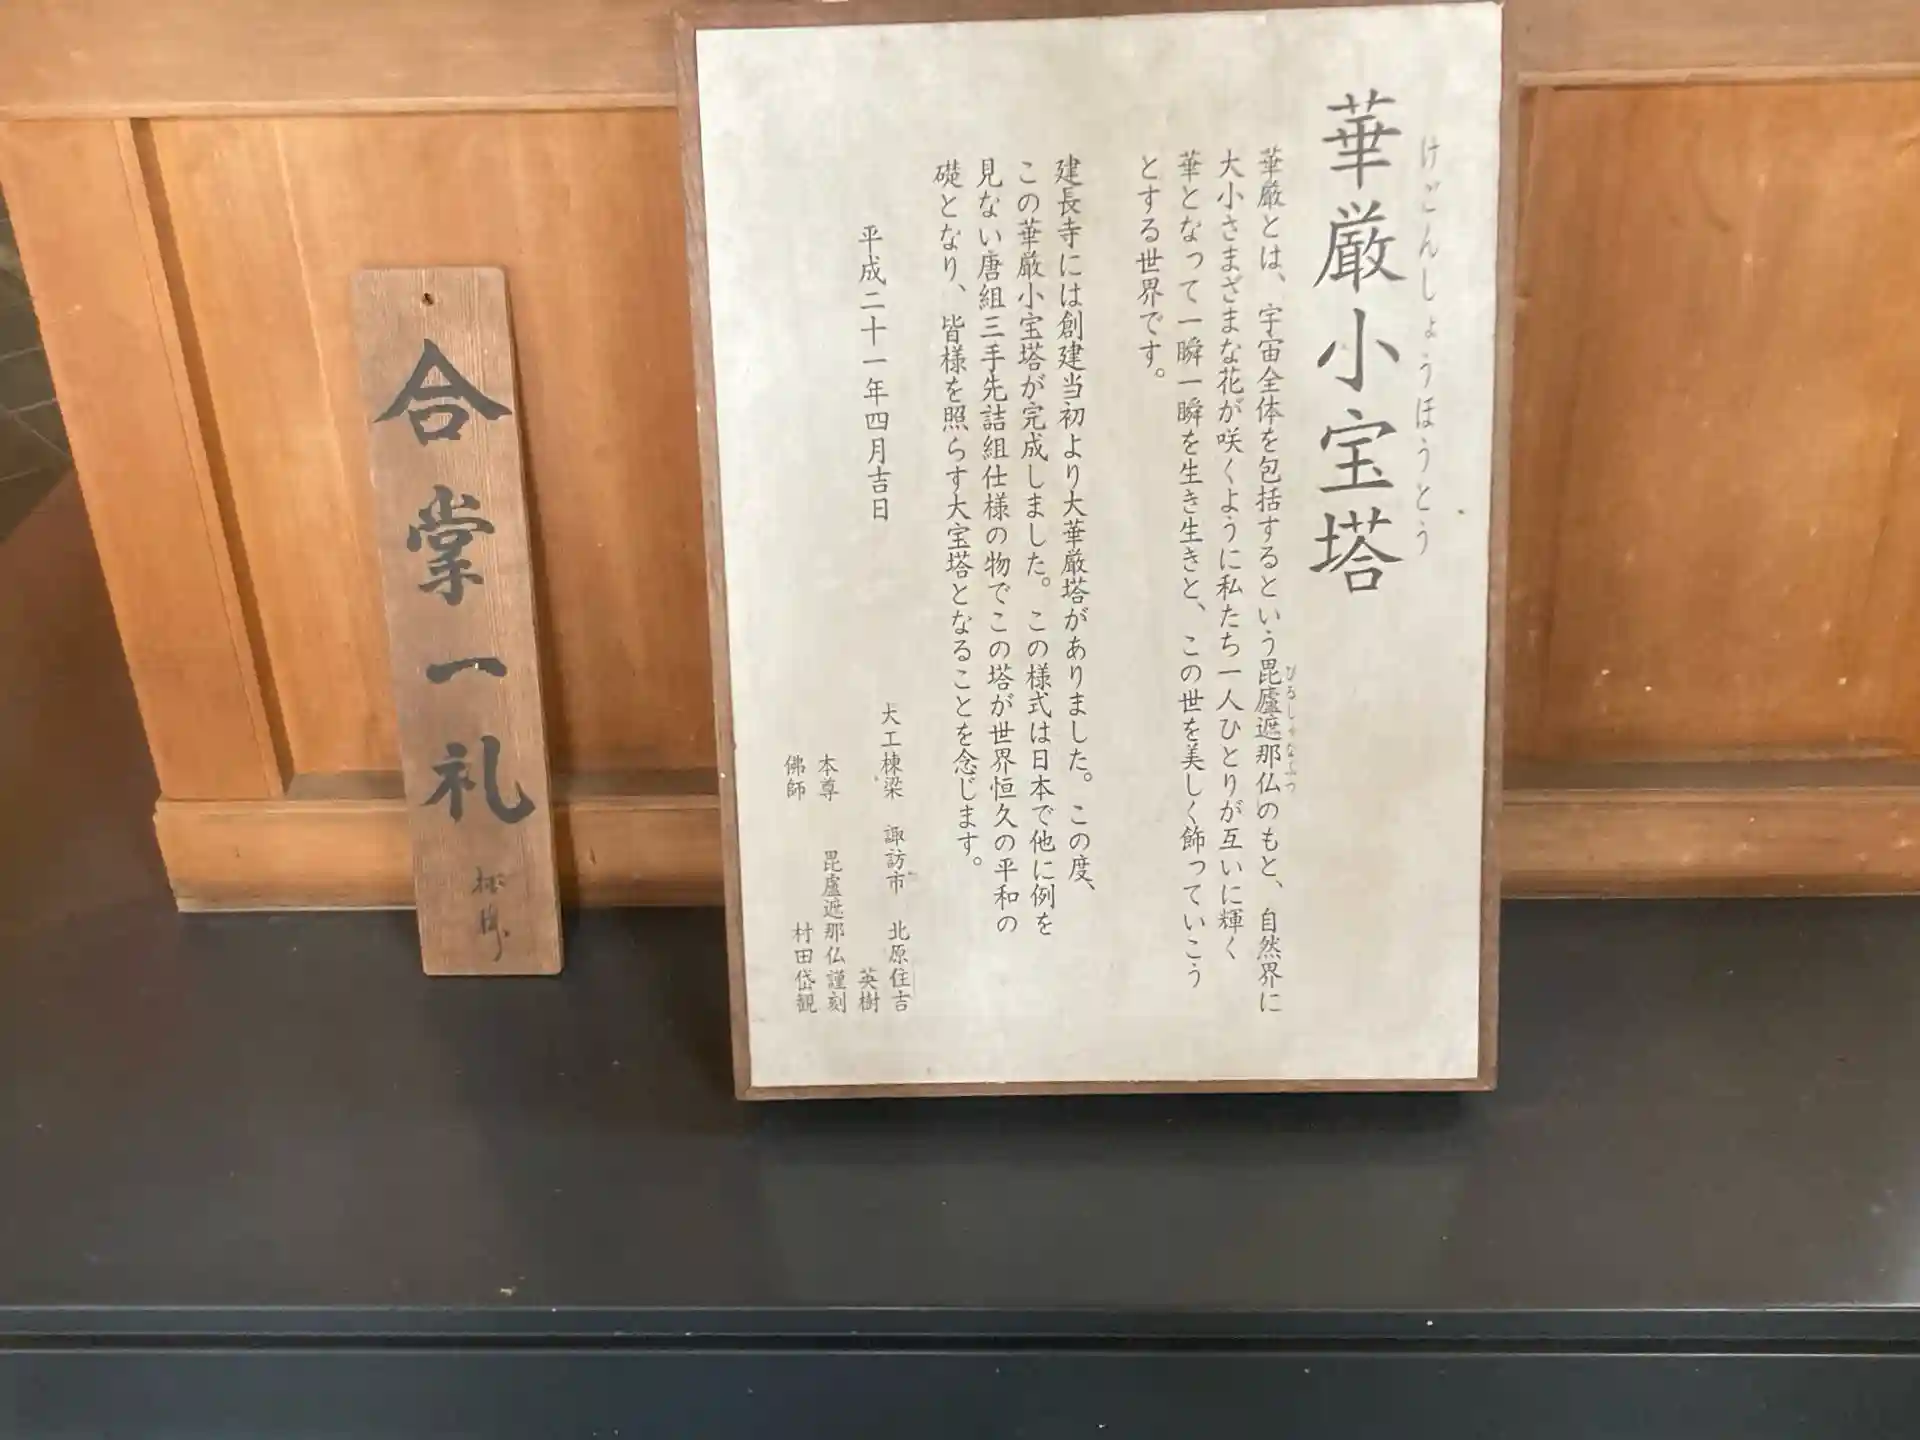 けごんしょうほうとう
華厳小宝塔
華厳とは、宇宙全体を包括するという毘廬遮那仏のもと、自然界に
びるしゃなぶつ
大小さまざまな花が咲くように私たち一人ひとりが互いに輝く
華となって一瞬一瞬を生き生きと、この世を美しく飾っていこう
とする世界です。
建長寺には創建当初より大華厳塔がありました。この度、
この華厳小宝塔が完成しました。この様式は日本で他に例を
見ない唐組三手先詰組仕様の物でこの塔が世界恒久の平和の
礎となり、皆様を照らす大宝塔となることを念じます。
平成二十一年四月吉日
大工棟梁 諏訪市 北原住吉
英樹
本尊 毘盧遮那仏謹刻
佛師 村田岱観
合掌一礼